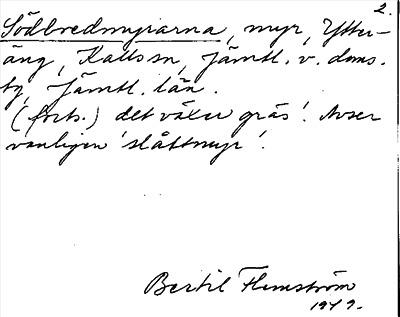 2.
Södbredmyrarna, myr, Ytter-
äng, Kalls sn, Jämtl. v. doms.
tg, Jämtl. län.
(forts.) det växer gräs'. Avser
vanligen 'slåttmyr'.
Bertil Flemström
1979.